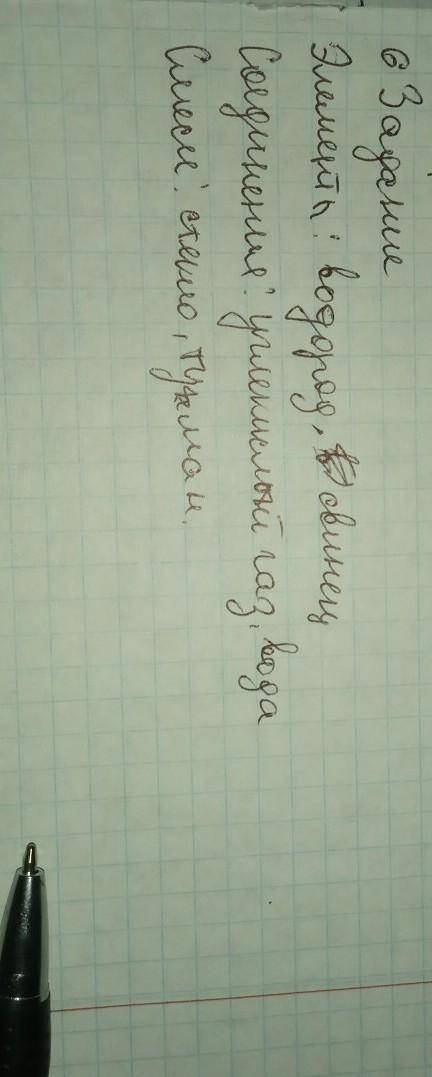 6 Задание
Элементы: водород, свинец
Соединения: углекислый газ, вода
Смеси: стекло, туман.